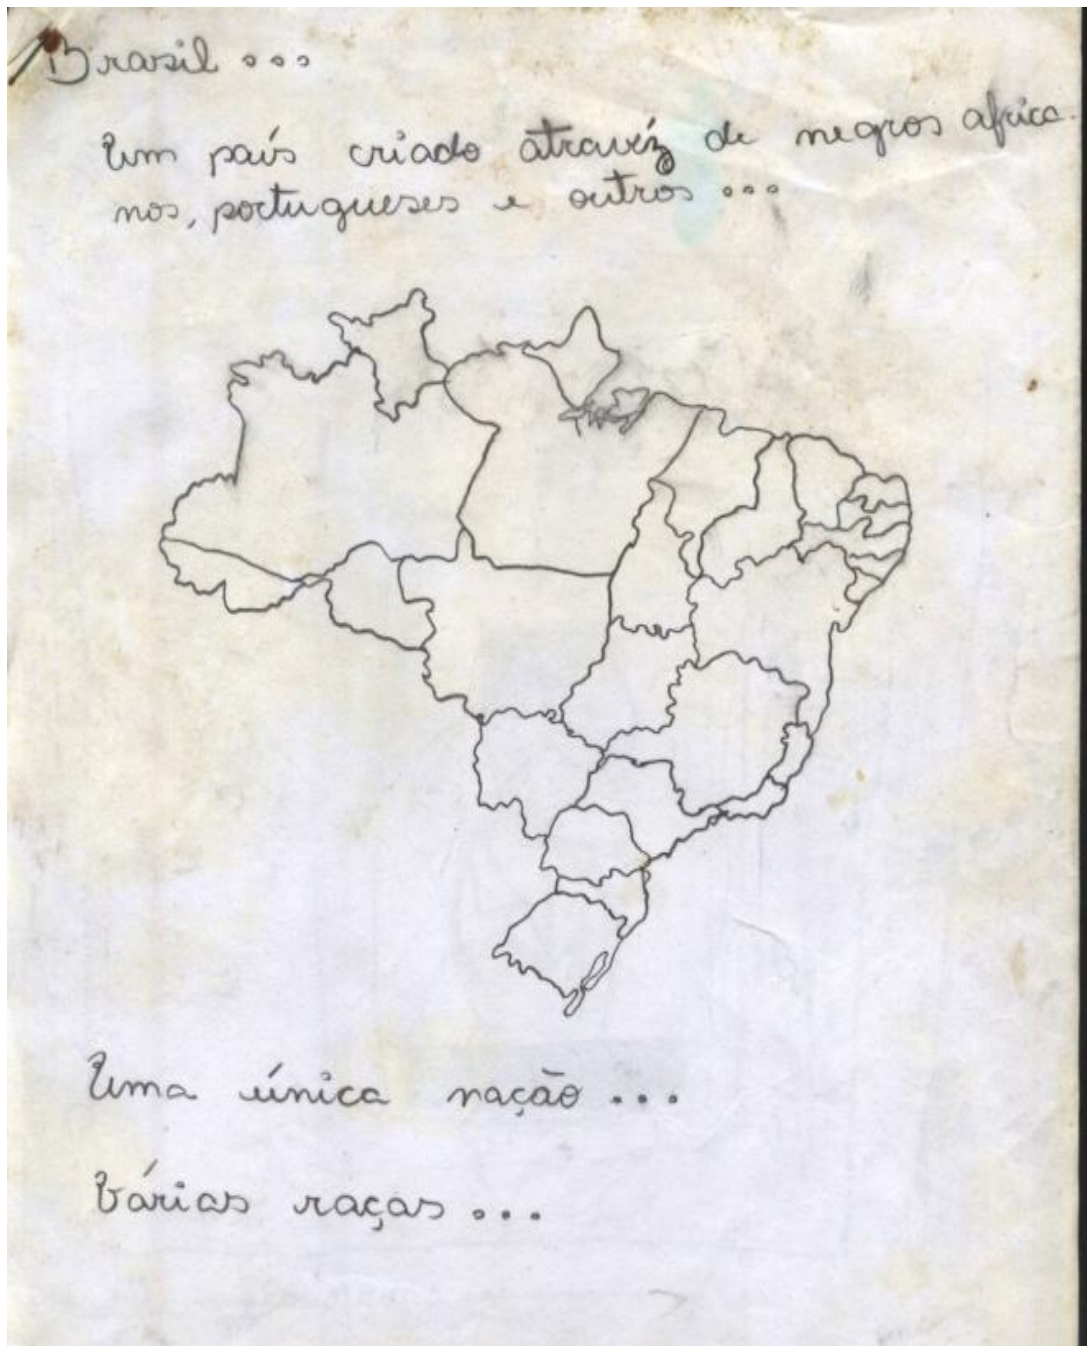 Brasil ...
Um país criado atravéz de negros africa-
nos, portugueses e outros ...
Uma única nação ...
Várias raças ...